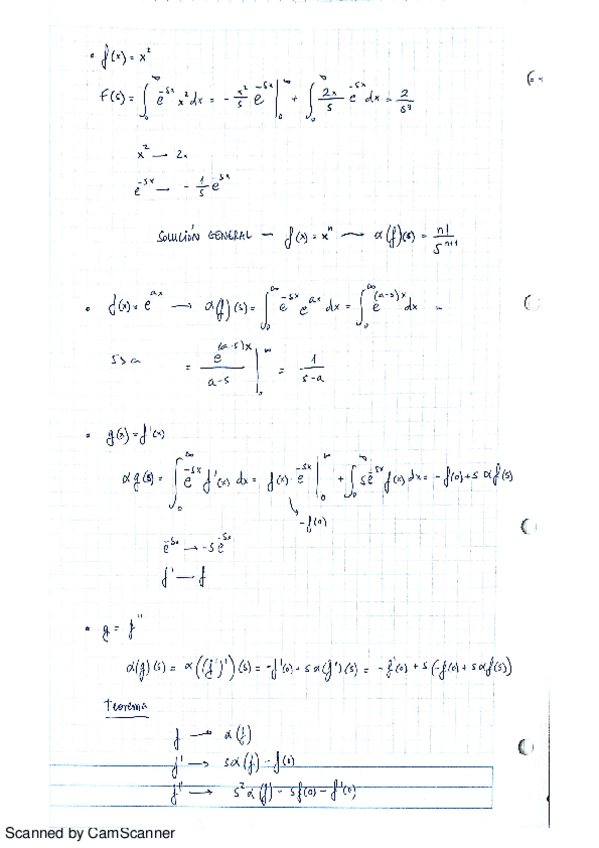 • f(x) = x²
F(s) = ∫₀^∞ e^{-sx} x² dx = - x²/s e^{-sx} |₀^∞ + ∫₀^∞ 2x/s e^{-sx} dx = 2/s³
x² — 2x
e^{-sx} — - 1/s e^{-sx}
SOLUCIÓN GENERAL — f(x) = x^n — α(f)(s) = n!/s^{n+1}
• f(x) = e^{ax} → α(f)(s) = ∫₀^∞ e^{-sx} e^{ax} dx = ∫₀^∞ e^{(a-s)x} dx =
s>a = e^{(a-s)x}/(a-s) |₀^∞ = 1/(s-a)
• g(x) = f'(x)
α g(s) = ∫₀^∞ e^{-sx} f'(x) dx = f(x) e^{-sx} |₀^∞ + ∫₀^∞ s e^{-sx} f(x) dx = -f(0) + s αf(s)
-f(0)
e^{-sx} → -s e^{-sx}
f' — f
• g = f''
α(g)(s) = α((f')')(s) = -f'(0) + s α(f')(s) = -f'(0) + s(-f(0) + s αf(s))
Teorema
f → α(f)
f' → sα(f) - f(0)
f'' → s²α(f) - sf(0) - f'(0)
Scanned by CamScanner